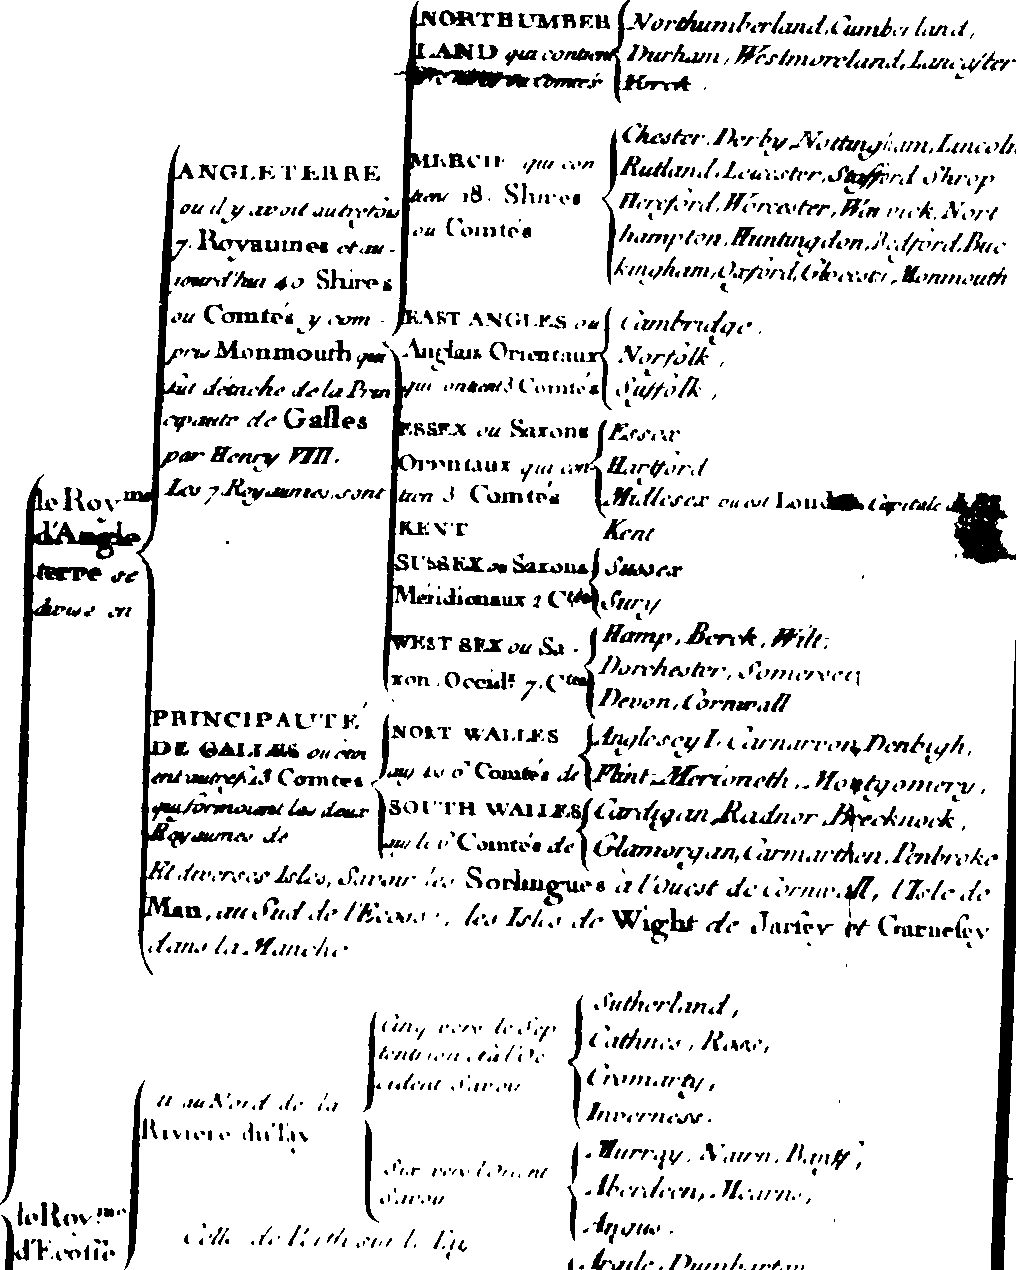 le Roy.me
d'Angle
terre se
divise en
ANGLETERRE
ou il y avoit autrefois
7. Royaumes et au-
jourd'hui 40 Shires
ou Comtés, y com-
pris Monmouth qui
fut détaché de la Prin
cipauté de Galles
par Henry VIII.
Les 7 Royaumes sont
NORTHUMBER
LAND qui contient
ou Comtés
Northumberland, Cumberland,
Durham, Westmoreland, Lancaster
Yorck.
MERCIE qui con
tient 18. Shires
ou Comtés
Chester, Derby, Nottingham, Lincoln
Rutland, Leicester, Stafford Shrop
Hereford, Worcester, Warwick, Nort
hampton, Huntingdon, Bedford, Buc
kingham, Oxford, Glocest, Monmouth
EAST ANGLES ou
Anglais Orientaux
qui contient 3 Comtés
Cambridge,
Norfolk,
Suffolk,
ESSEX ou Saxons
Orientaux qui con
tien 3 Comtés
Essex
Hartford
Midlesex ou est Londres Capitale
KENT
Kent
SUSSEX ou Saxons
Méridionaux 2 C.tés
Sussex
Sury
WEST SEX ou Sa-
xon. Occid.x 7. C.tés
Hamp, Berck, Wilt,
Dorchester, Somerset
Devon, Cornwall
PRINCIPAUTÉ
DE GALLES ou étoi
ent autref.s 13 Comtes
qui formoient les deux
Royaumes de
NORT WALLES
6 Comtés de
Anglesey I. Carnarvon, Denbigh,
Flint, Merioneth, Montgomery,
SOUTH WALLES
Comtés de
Cardigan, Radnor, Brecknock,
Glamorgan, Carmarthen, Penbroke
Et diverses Isles, Savoir les Sorlingues à l'Ouest de Cornwall, l'Isle de
Man, au Sud de l'Ecosse, les Isles de Wight de Jarsey et Garnesey
dans la Manche
le Roy.me
d'Ecosse
11 au Nord de la
Riviere du Tay
Cinq vers le Sep
tentrion et à l'Oc
cident Savoir
Sutherland,
Cathnes, Ross,
Cromarty,
Inverness.
Six vers l'Orient
Savoir
Murray, Nairn, Banff,
Aberdeen, Mearns,
Angus.
Celle de Perth sur le Tay
Argile, Dumbarton